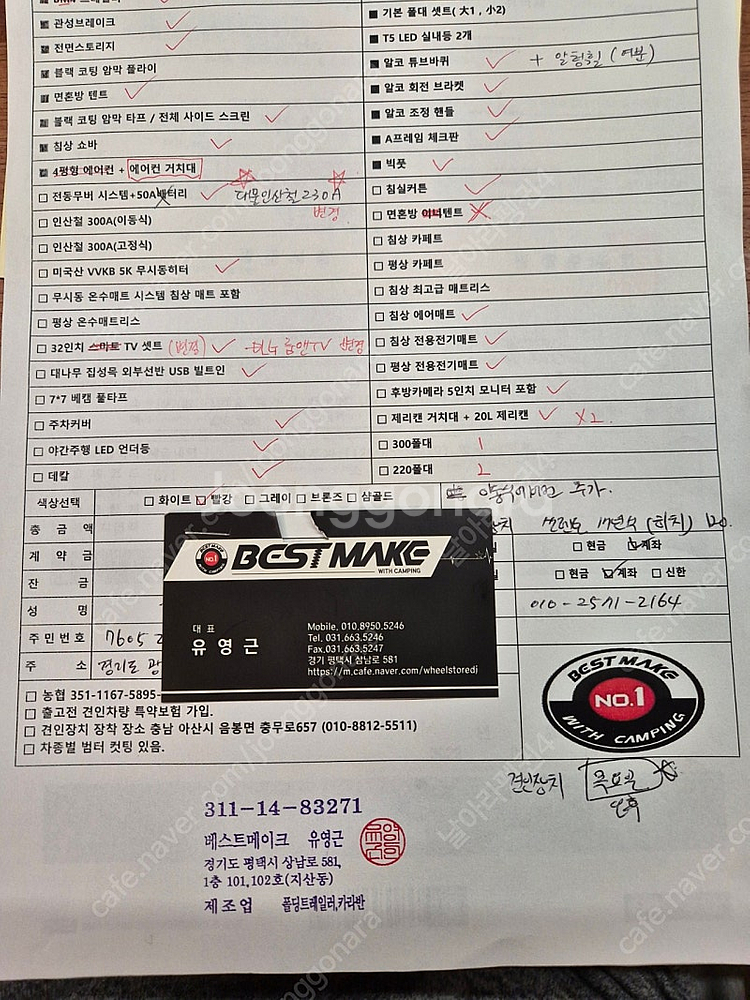 관성브레이크
전면스토리지
블랙 코팅 암막 플라이
면혼방 텐트
블랙 코팅 암막 타프 / 전체 사이드 스크린
침상 쇼바
4평형 에어컨 + 에어컨 거치대
전동무버 시스템+50A배터리 대물인산철230A
변경
인산철 300A(이동식)
인산철 300A(고정식)
미국산 VVKB 5K 무시동히터
무시동 온수매트 시스템 침상 매트 포함
평상 온수매트리스
32인치 스마트 TV 셋트 (변경) TV 변경
대나무 집성목 외부선반 USB 빌트인
7*7 베캠 풀타프
주차커버
야간주행 LED 언더등
데칼
기본 폴대 셋트( 大1 , 小2)
T5 LED 실내등 2개
알코 튜브바퀴 + 알휠 (여분)
알코 회전 브라켓
알코 조정 핸들
A프레임 체크판
빅풋
침실커튼
면혼방 텐트
침상 카페트
평상 카페트
침상 최고급 매트리스
침상 에어매트
침상 전용전기매트
평상 전용전기매트
후방카메라 5인치 모니터 포함
제리캔 거치대 + 20L 제리캔 X2
300폴대 1
220폴대 2
색상선택 화이트 빨강 그레이 브론즈 샴골드 추가.
총 금 액 (히치) 120.
계 약 금 현금 계좌
잔 금 현금 계좌 신한
성 명 010-2571-2164
주 민 번 호 7605
주 소 경기도 광
BEST MAKE
WITH CAMPING
NO.1
대 표
유 영 근
Mobile. 010.8950.5246
Tel. 031.663.5246
Fax.031.663.5247
경기 평택시 삼남로 581
https://m.cafe.naver.com/wheelstoredj
농협 351-1167-5895-
출고전 견인차량 특약보험 가입.
견인장치 장착 장소 충남 아산시 음봉면 충무로657 (010-8812-5511)
차종별 범터 컷팅 있음.
BEST MAKE
NO.1
WITH CAMPING
견인장치 목요일
오후
311-14-83271
베스트메이크 유영근
경기도 평택시 삼남로 581,
1층 101,102호(지산동)
제조업 폴딩트레일러,카라반
cafe.naver.com/joonggonara
joonggonara
날아라팽이4